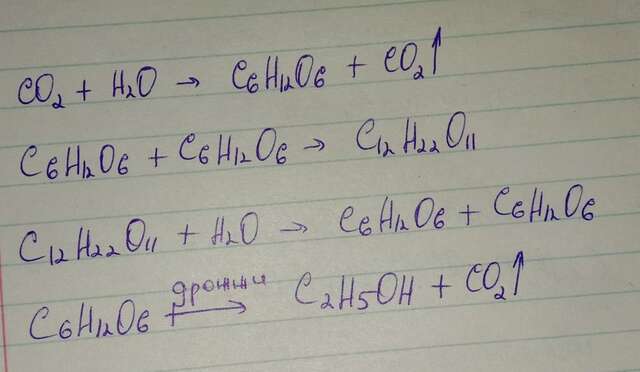 CO₂ + H₂O → C₆H₁₂O₆ + CO₂↑
C₆H₁₂O₆ + C₆H₁₂O₆ → C₁₂H₂₂O₁₁
C₁₂H₂₂O₁₁ + H₂O → C₆H₁₂O₆ + C₆H₁₂O₆
C₆H₁₂O₆ дрожжи → C₂H₅OH + CO₂↑